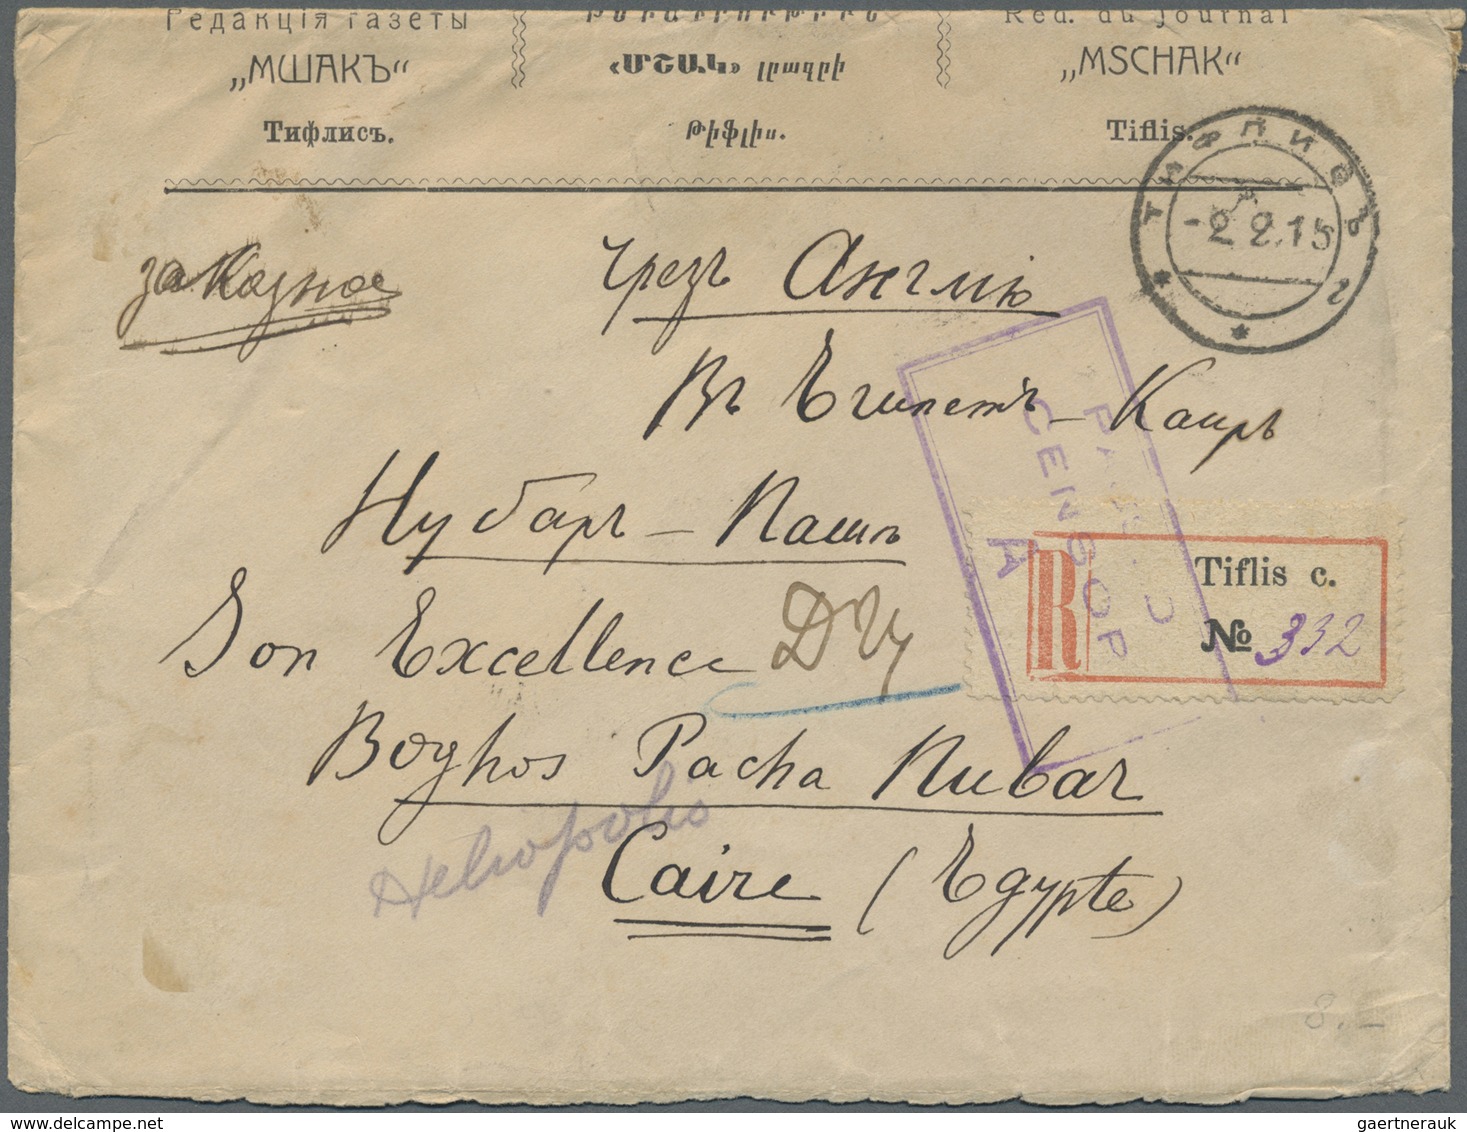 Редакція газеты
„МШАКЪ“
Тифлисъ.
«ՄՇԱԿ» լրագրի
Թիֆլիս.
Red. du Journal
„MSCHAK“
Tiflis.
ТИФЛИСЪ
-2 2.15
г
заказное
чрезъ Англію
Въ Египетъ - Каиръ
Нубаръ - Пашѣ
PASSED
CENSOR
A
R
Tiflis c.
№ 332
Son Excellence
Boghos Pacha Nubar
Heliopolis
Caire (Egypte)
8.-
gaertnerauk